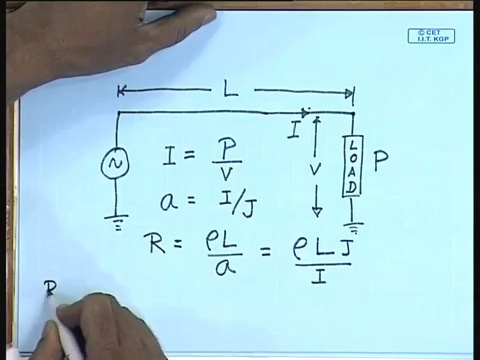 © CET
I.I.T. KGP
L
I
V
LOAD
P
I = P/V
a = I/J
R = ρL/a = ρLJ/I